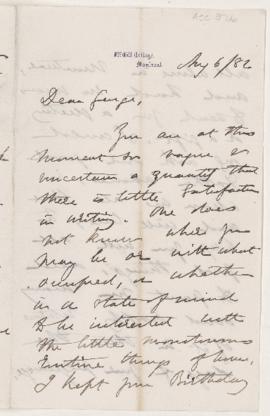 McGill College,
Montreal
Aug 6/82
Dear George,
You are at this
moment so vague &
uncertain a quantity that
there is little satisfaction
in writing. One does
not know where you
may be or with what
occupied, or whether
in a state of mind
to be interested with
the little monotonous
routine things of home,
I kept your Birthday